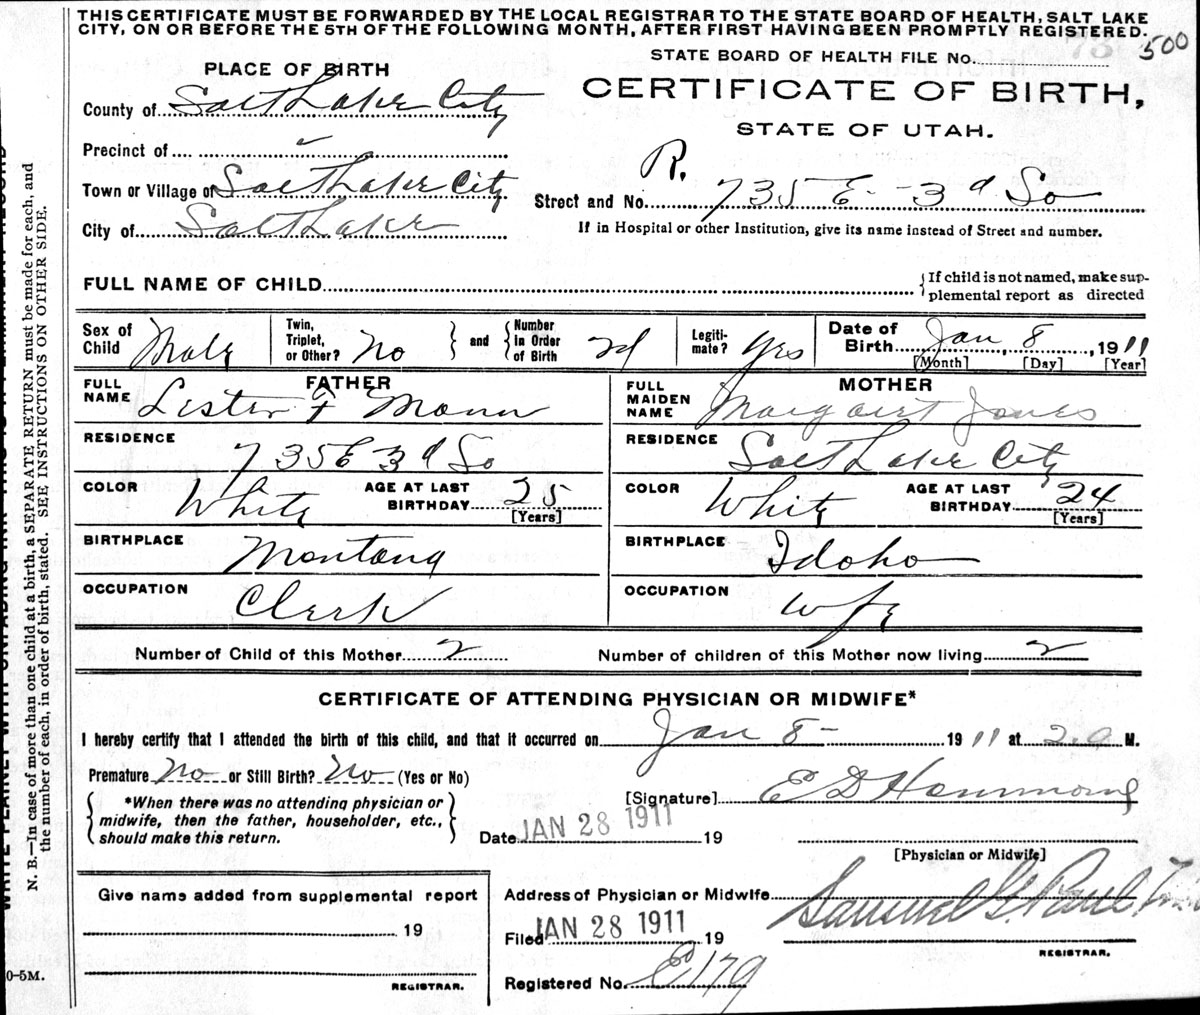 THIS CERTIFICATE MUST BE FORWARDED BY THE LOCAL REGISTRAR TO THE STATE BOARD OF HEALTH, SALT LAKE
CITY, ON OR BEFORE THE 5TH OF THE FOLLOWING MONTH, AFTER FIRST HAVING BEEN PROMPTLY REGISTERED.
500
STATE BOARD OF HEALTH FILE No.
PLACE OF BIRTH
CERTIFICATE OF BIRTH,
STATE OF UTAH.
County of Salt Lake City
Precinct of
Town or Village of Salt Lake City
City of Salt Lake
R.
Street and No. 735 E - 3d So
If in Hospital or other Institution, give its name instead of Street and number.
FULL NAME OF CHILD
{If child is not named, make sup-
plemental report as directed
Sex of Child Male
Twin, Triplet, or Other? No
and
Number in Order of Birth 2d
Legiti-mate? Yes
Date of Birth Jan, 8, 1911
[Month] [Day] [Year]
FATHER
FULL NAME Lester F Mann
RESIDENCE 735 E 3d So
COLOR White AGE AT LAST BIRTHDAY 25
[Years]
BIRTHPLACE Montana
OCCUPATION Clerk
MOTHER
FULL MAIDEN NAME Margaret Jones
RESIDENCE Salt Lake City
COLOR White AGE AT LAST BIRTHDAY 24
[Years]
BIRTHPLACE Idoho
OCCUPATION wfe
Number of Child of this Mother 2 Number of children of this Mother now living 2
CERTIFICATE OF ATTENDING PHYSICIAN OR MIDWIFE*
I hereby certify that I attended the birth of this child, and that it occurred on Jan 8 - 1911 at 2.a M.
Premature No or Still Birth? No (Yes or No)
*When there was no attending physician or
midwife, then the father, householder, etc.,
should make this return.
[Signature] E D Hammond
Date JAN 28 1911 19
[Physician or Midwife]
Give name added from supplemental report
19
REGISTRAR.
Address of Physician or Midwife
Samuel G. Paul
Filed JAN 28 1911 19
REGISTRAR.
Registered No. E179
N. B.—In case of more than one child at a birth, a SEPARATE RETURN must be made for each, and
the number of each, in order of birth, stated. SEE INSTRUCTIONS ON OTHER SIDE.
0-5M.